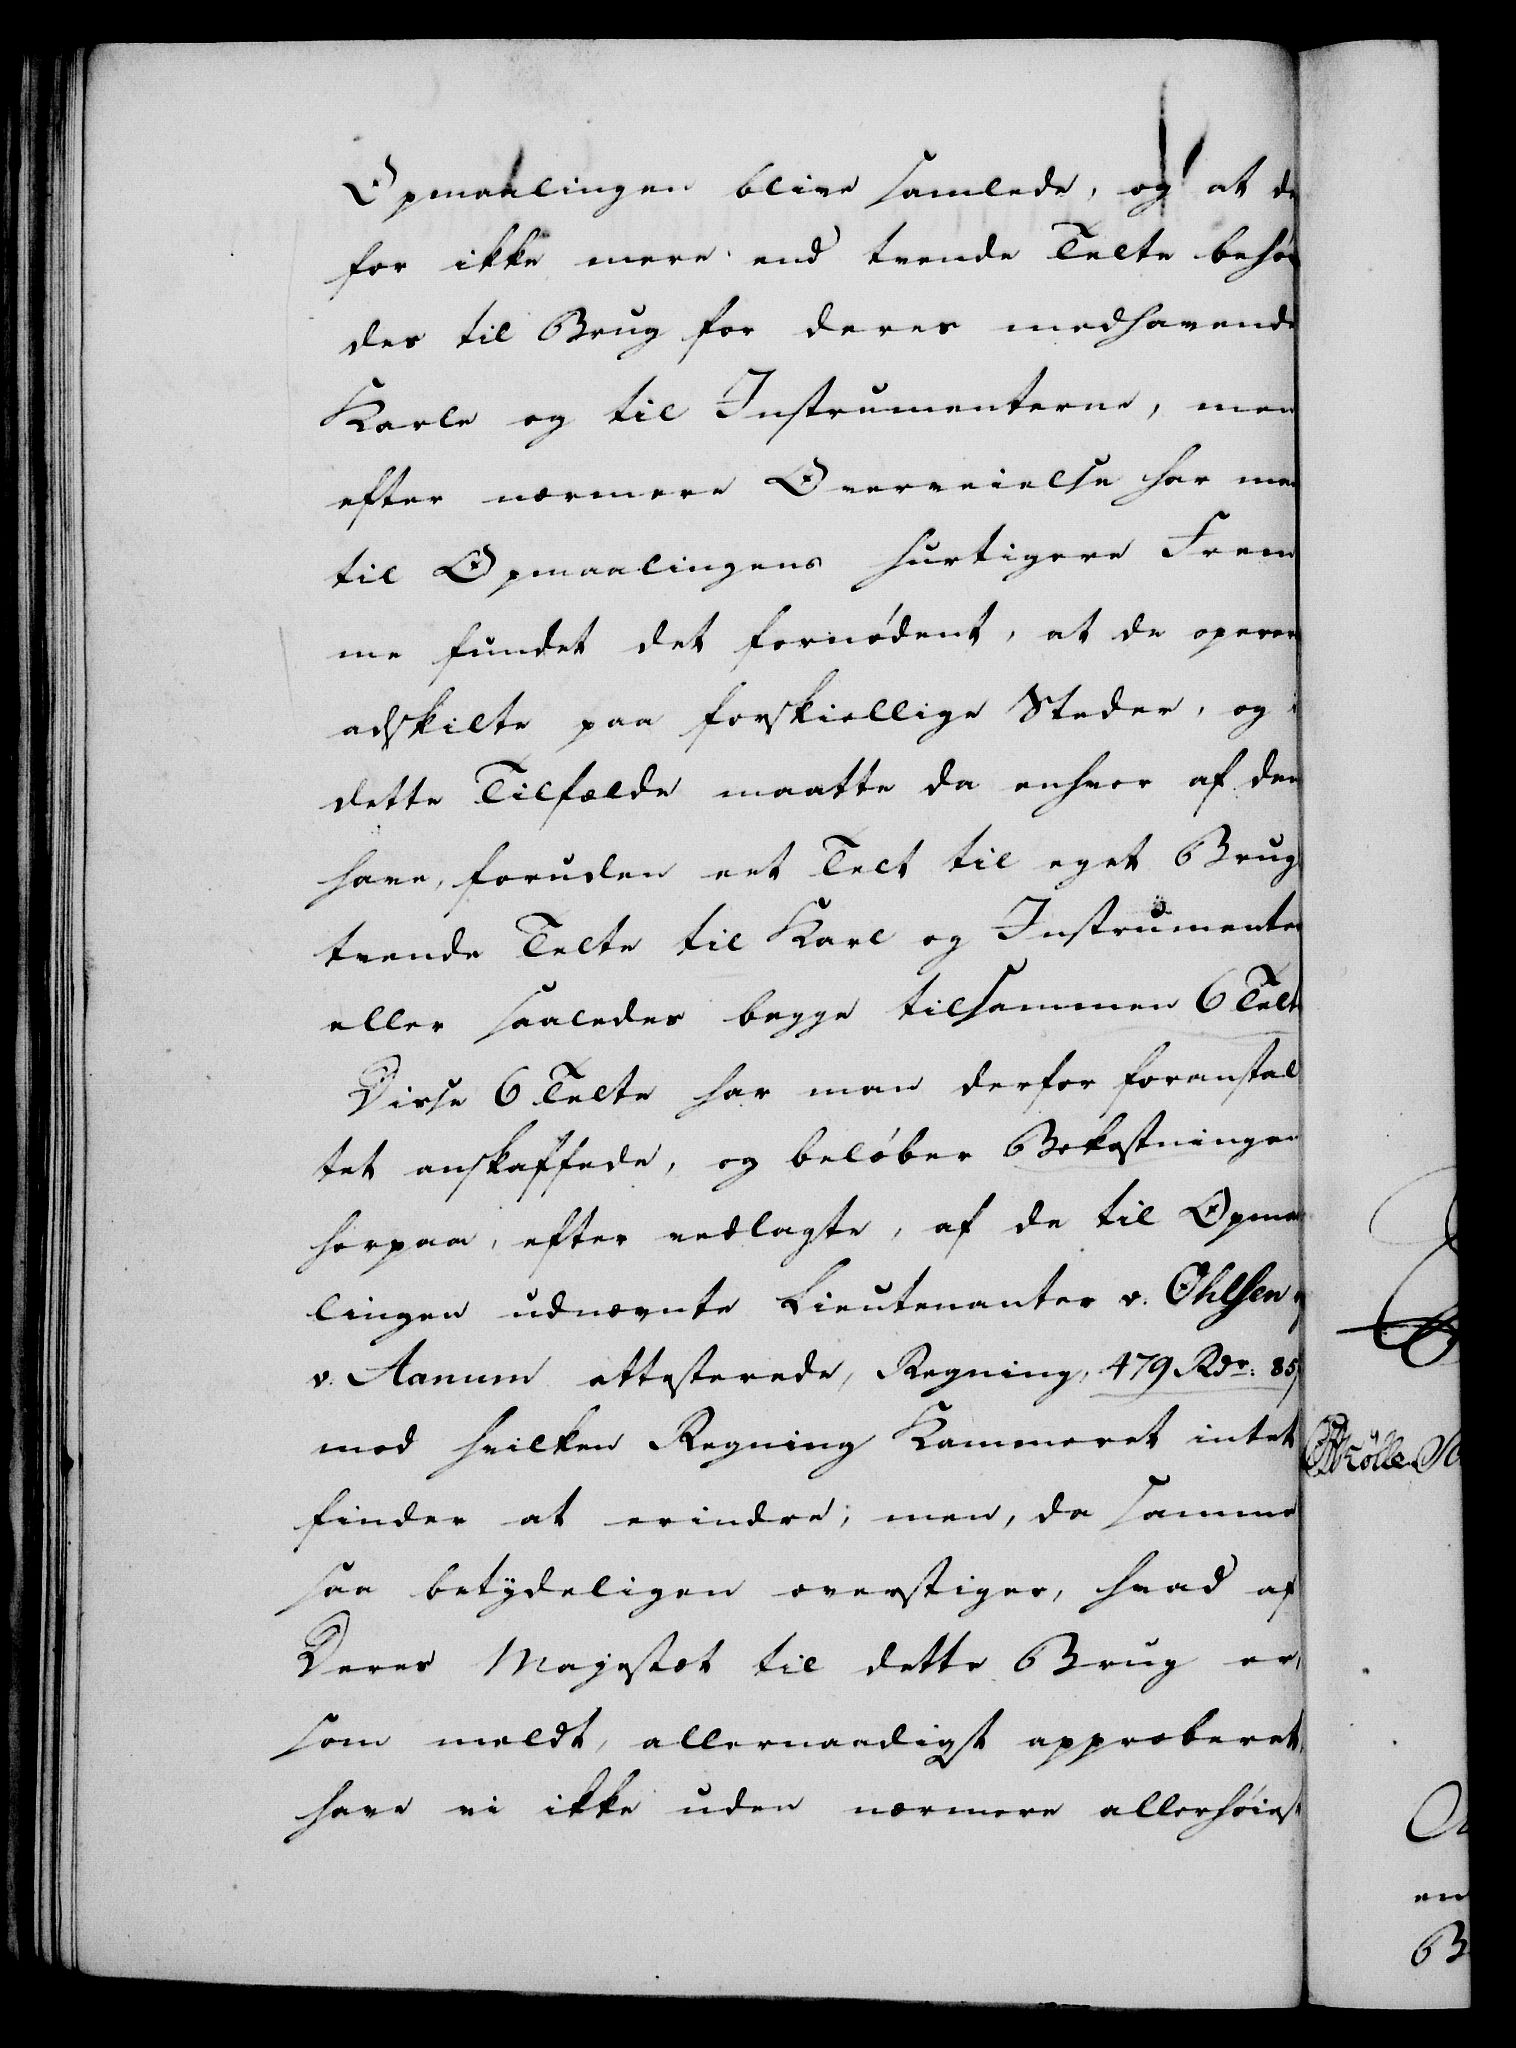 Opmaalingen blive samlede, og at de
for ikke mere end tvende Telte behøv
des til Brug for deres medhavende
Karle og til Instrumenterne, men
efter nærmere Overveielse har man
til Opmaalingens hurtigere Frem
me fundet det fornødent, at de operer
adskilte paa forskiellige Steder, og i
dette Tilfælde maatte da enhver af dem
have, foruden eet Telt til eget Brug
tvende Telte til Karl og Instrumenter
eller saaledes begge tilsammen 6 Telte
Disse 6 Telte har man derfor foranstal
tet anskaffede, og beløber Bekostningen
herpaa, efter vedlagte, af de til Opmaa
lingen udnævnte Lieutenanter v. Ohlsen og
v. Aanum attesterede, Regning, 479 Rdr: 85
mod hvilken Regning Kammeret intet
finder at erindre; men, da samme
saa betÿdeligen overstiger, hvad af
Deres Majestæt til dette Brug er,
som meldt, allernaadigst approberet,
have vi ikke uden nærmere allerhøiest